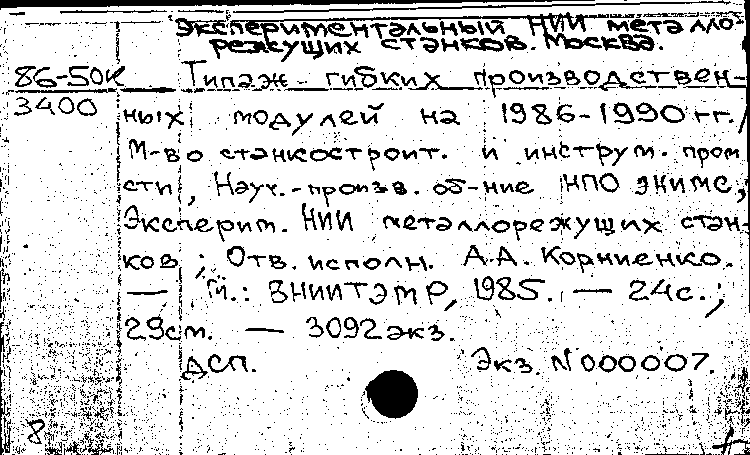 Экспериментальный НИИ металло-
режущих станков. Москва.
86-50К Типаж гибких производствен-
3400 ных модулей на 1986-1990 гг. /
М-во станкостроит. и инструм. пром
сти, Науч.-произв. об-ние НПО ЭНИМС,
Эксперим. НИИ металлорежущих стан-
ков ; Отв. исполн. А.А. Корниенко.
— М.: ВНИИТЭМР, 1985. — 24с.;
29см. — 3092 экз.
ДСП. Экз. N 000007.
8